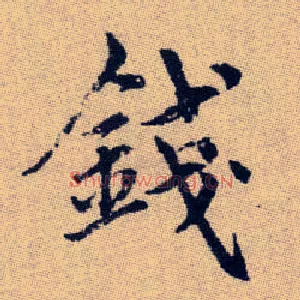 錢
Shufawang.CN